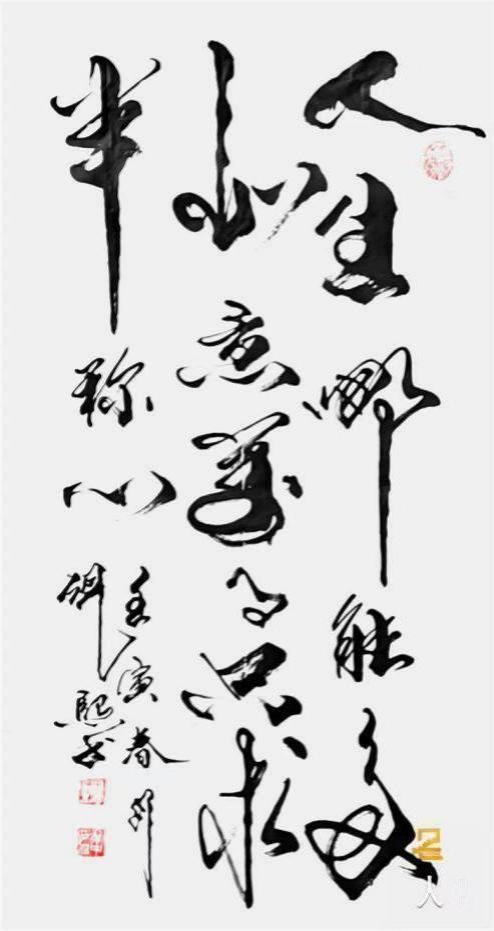 人生哪能多
如意萬事只求
半称心
壬寅春
熙书